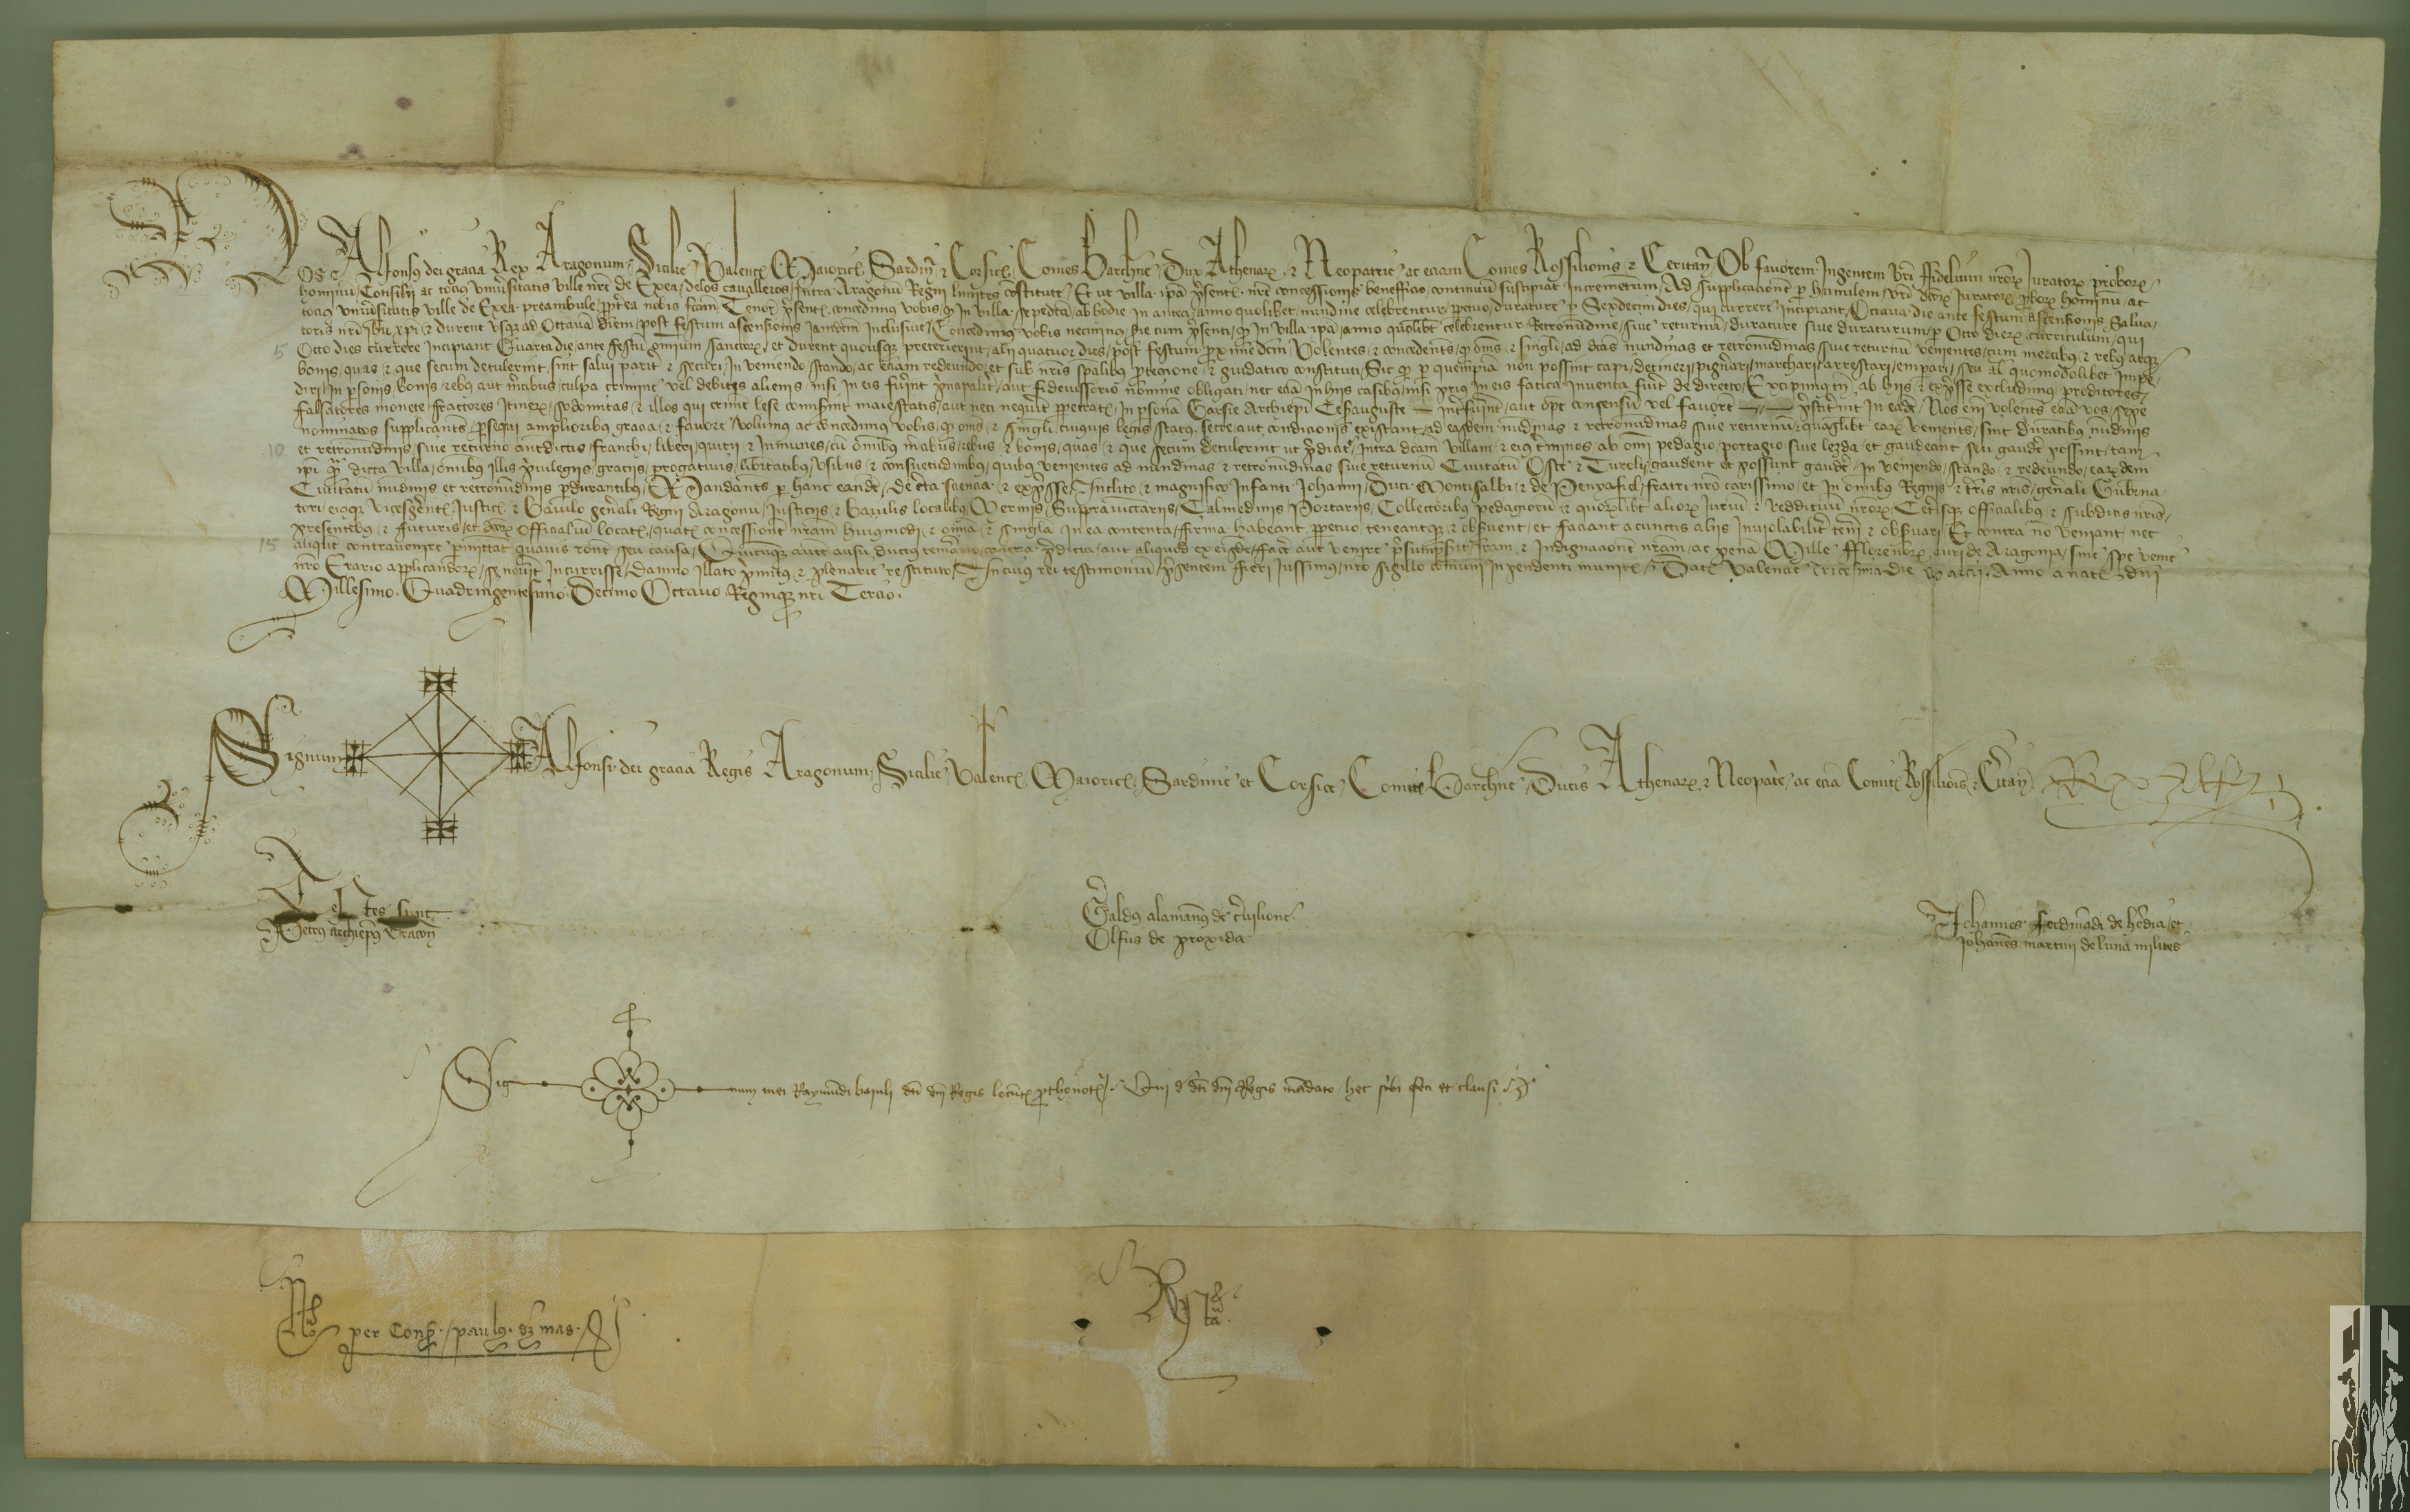 Nos Alfonsus dei gracia Rex Aragonum, Sicilie, Valencie, Maioricarum, Sardinie & Corsice, Comes Barchinone, Dux Athenarum & Neopatrie, ac eciam Comes Rossilionis & Ceritanie, Ob favorem Ingentem vestri ffidelium nostrorum Juratorum proborum
hominum Consilii ac tocius universitatis ville nostre de Exea delos cavalleros, Intra Aragonum Regni limites constitute, Et ut villa ipsa presentis nostre concessionis beneffico continuum suscipiat incrementum, Ad supplicacionem per humilem vestri dictorum Juratorum, proborum hominum, ac
tocius universitatis ville de Exea preambule, propterea nobis factam, Tenore presentis concedimus vobis, quod In villa sepedicta, ab hodie in antea, anno quolibet, nundine celebrentur, perpetuo durature per Sexdecim dies, qui currere incipiant, Octava die ante festum ascensionis Salva-
toris nostri Jhesu xpi, & durent usque ad Octavam diem, post festum ascensionis iamdictum Inclusive, Concedimus vobis necminus, hic cum presenti, quod In villa ipsa, anno quolibet celebrentur Retronundine, sive returnum, durature sive duraturum, per Octo dierum curriculum, qui
5 Octo dies currere Incipiant Quarta die, ante festum omnium sanctorum, et durent quousque preterierint, alii quatuor dies, post festum proxime dictum, Volentes, & concedentes, quod omnes, & singuli, ad dictas nundinas et retronundinas, sive returnum venientes, cum mercibus, & rebus atque
bonis, quas, & que secum detulerint, sint salvi pariter & securi, In veniendo, stando, ac eciam redeundo, et sub nostris specialibus proteccione, & guidatico constituti, Sic quod per quempiam non possint capi, detineri, pignerari, marchari, arrestari, emparari, seu aliter quomodolibet impe-
diri, In personis, bonis, rebus, aut mercibus, culpa, crimine, vel debitis alienis, nisi in eis fuerint principaliter, aut fideiussorio nomine obligati, nec eciam In hiis casibus, nisi prius In eis fatica Inventa fuerit de directo, Excipimus tamen ab hiis, & expresse excludimus, proditores,
falsatores monete, fractores Itinerum, sodomitas, & illos qui crimen lese comiserint maiestatis, aut neci nequiter perpetrate, In persona Garsie Archiepiscopi Cesarauguste Interfuerint, aut opem consensum vel favorem prestiterint In eadem, Nos enim volentes eciam vos, sepe
nominatos supplicantes, prosequi amplioribus gracia, & favore, Volumus ac concedimus vobis, quod omnes, & singuli, cuiusvis legis, status, secte, aut condicionis existant, ad easdem nundinas & retronundinas sive returnum, & quaslibet earum venientes, sint durantibus nundinis
10 et retronundinis, sive returno antedictis, franchi, liberi, quitii, & Inmunes, cum omnibus mercibus, rebus, & bonis, quas, & que secum detulerint ut predicitur, Intra dictam villam, & eius terminos, ab omni pedagio, portagio, sive lezda, et gaudeant, seu gaudere possint, tam
ipsi quam dicta villa, omnibus illis privilegiis, graciis, prerogativis, libertatibus, usibus, & consuetudinibus, quibus venientes ad nundinas, & retronundinas sive returnum Civitatum Osce & Turoli, gaudent et possunt gaudere, In veniendo, stando, & redeundo, earumdem
Civitatum nundinis et retronundinis perdurantibus, Mandantes per hanc eandem, de certa sciencia, & expresse, Inclito, & magnifico Infanti Johanni, Duci Montisalbi, & de Penyafiel, fratri nostro carissimo, et In omnibus Regnis, & terris nostris, generali Guberna-
tori, eiusque vicesgerenti, Justicie, & Baiulo generali Regni Aragonum, Justiciis, & Baiulis localibus, Merinis, Suprajunctariis, Calmedinis, Portariis, Collectoribus pedagiorum, & quorumlibet aliorum Jurium, & Reddituum nostrorum, Ceterisque officialibus, & subditis nostris,
presentibus, & futuris, et dictorum officialium locatenentibus, quatenus concessionem nostram huiusmodi, & omnia, & singula In ea contenta, firma habeant perpetuo, teneantque, & observent, et faciant a cunctis aliis Inviolabiliter teneri & observari, Et contra non veniant, nec
15 aliquem contravenire permittant quavis racione, seu causa, Quicunque autem ausu ductus temerario, contra predicta, aut aliquid ex eisdem, facere aut venire presumpserit, Iram & Indignacionem nostram, ac penam Mille fflorenorum auri de Aragonia, sine spe venie
nostro Erario applicandorum, se noverit Incurrisse, damno illato primitus, & plenarie restituto, In cuius rei testimonium, presentem fieri Iussimus, nostro sigillo comuni In pendenti munitam, Datum Valencie Tricesima die Marcii, Anno a nativitate domini
Millesimo Quadringentesimo Decimo Octavo, Regnique nostri Tercio.
Signum Alfonsi dei gracia Regis Aragonum, Sicilie, Valencie, Maioricarum, Sardinie et Corsice, Comitis Barchinone, Ducis Athenarum & Neopatrie, ac eciam Comitis Rossilionis, & Ceritanie Rex Alfonsus
Testes sunt
Petrus archiepiscopus Tiracon
Geraldus alamanus de cervilione
Olfus de proxida
Johannes ferdinandi de heredia, et
Johannes martini de luna milites
Signum mei Raymundi baiuli dicti domini Regis locumtenentis prothonotarii, Qui de dicti domini Regis mandato hec scribi feci et clausi
per Conss paulus
Rta